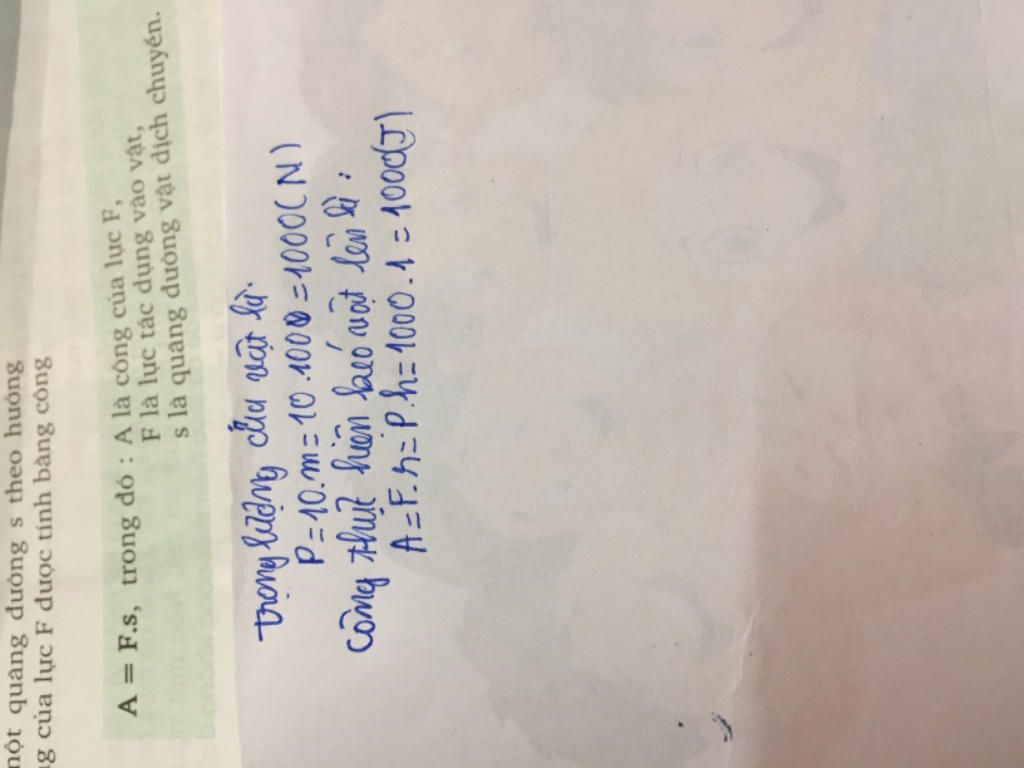 một quãng đường s theo hướng
ng của lực F được tính bằng công
A = F.s, trong đó : A là công của lực F,
F là lực tác dụng vào vật,
s là quãng đường vật dịch chuyển.
trọng lượng của vật là:
P = 10.m = 10.100 = 1000(N)
công thực hiện kéo vật lên là:
A = F.s = P.h = 1000.1 = 1000(J)